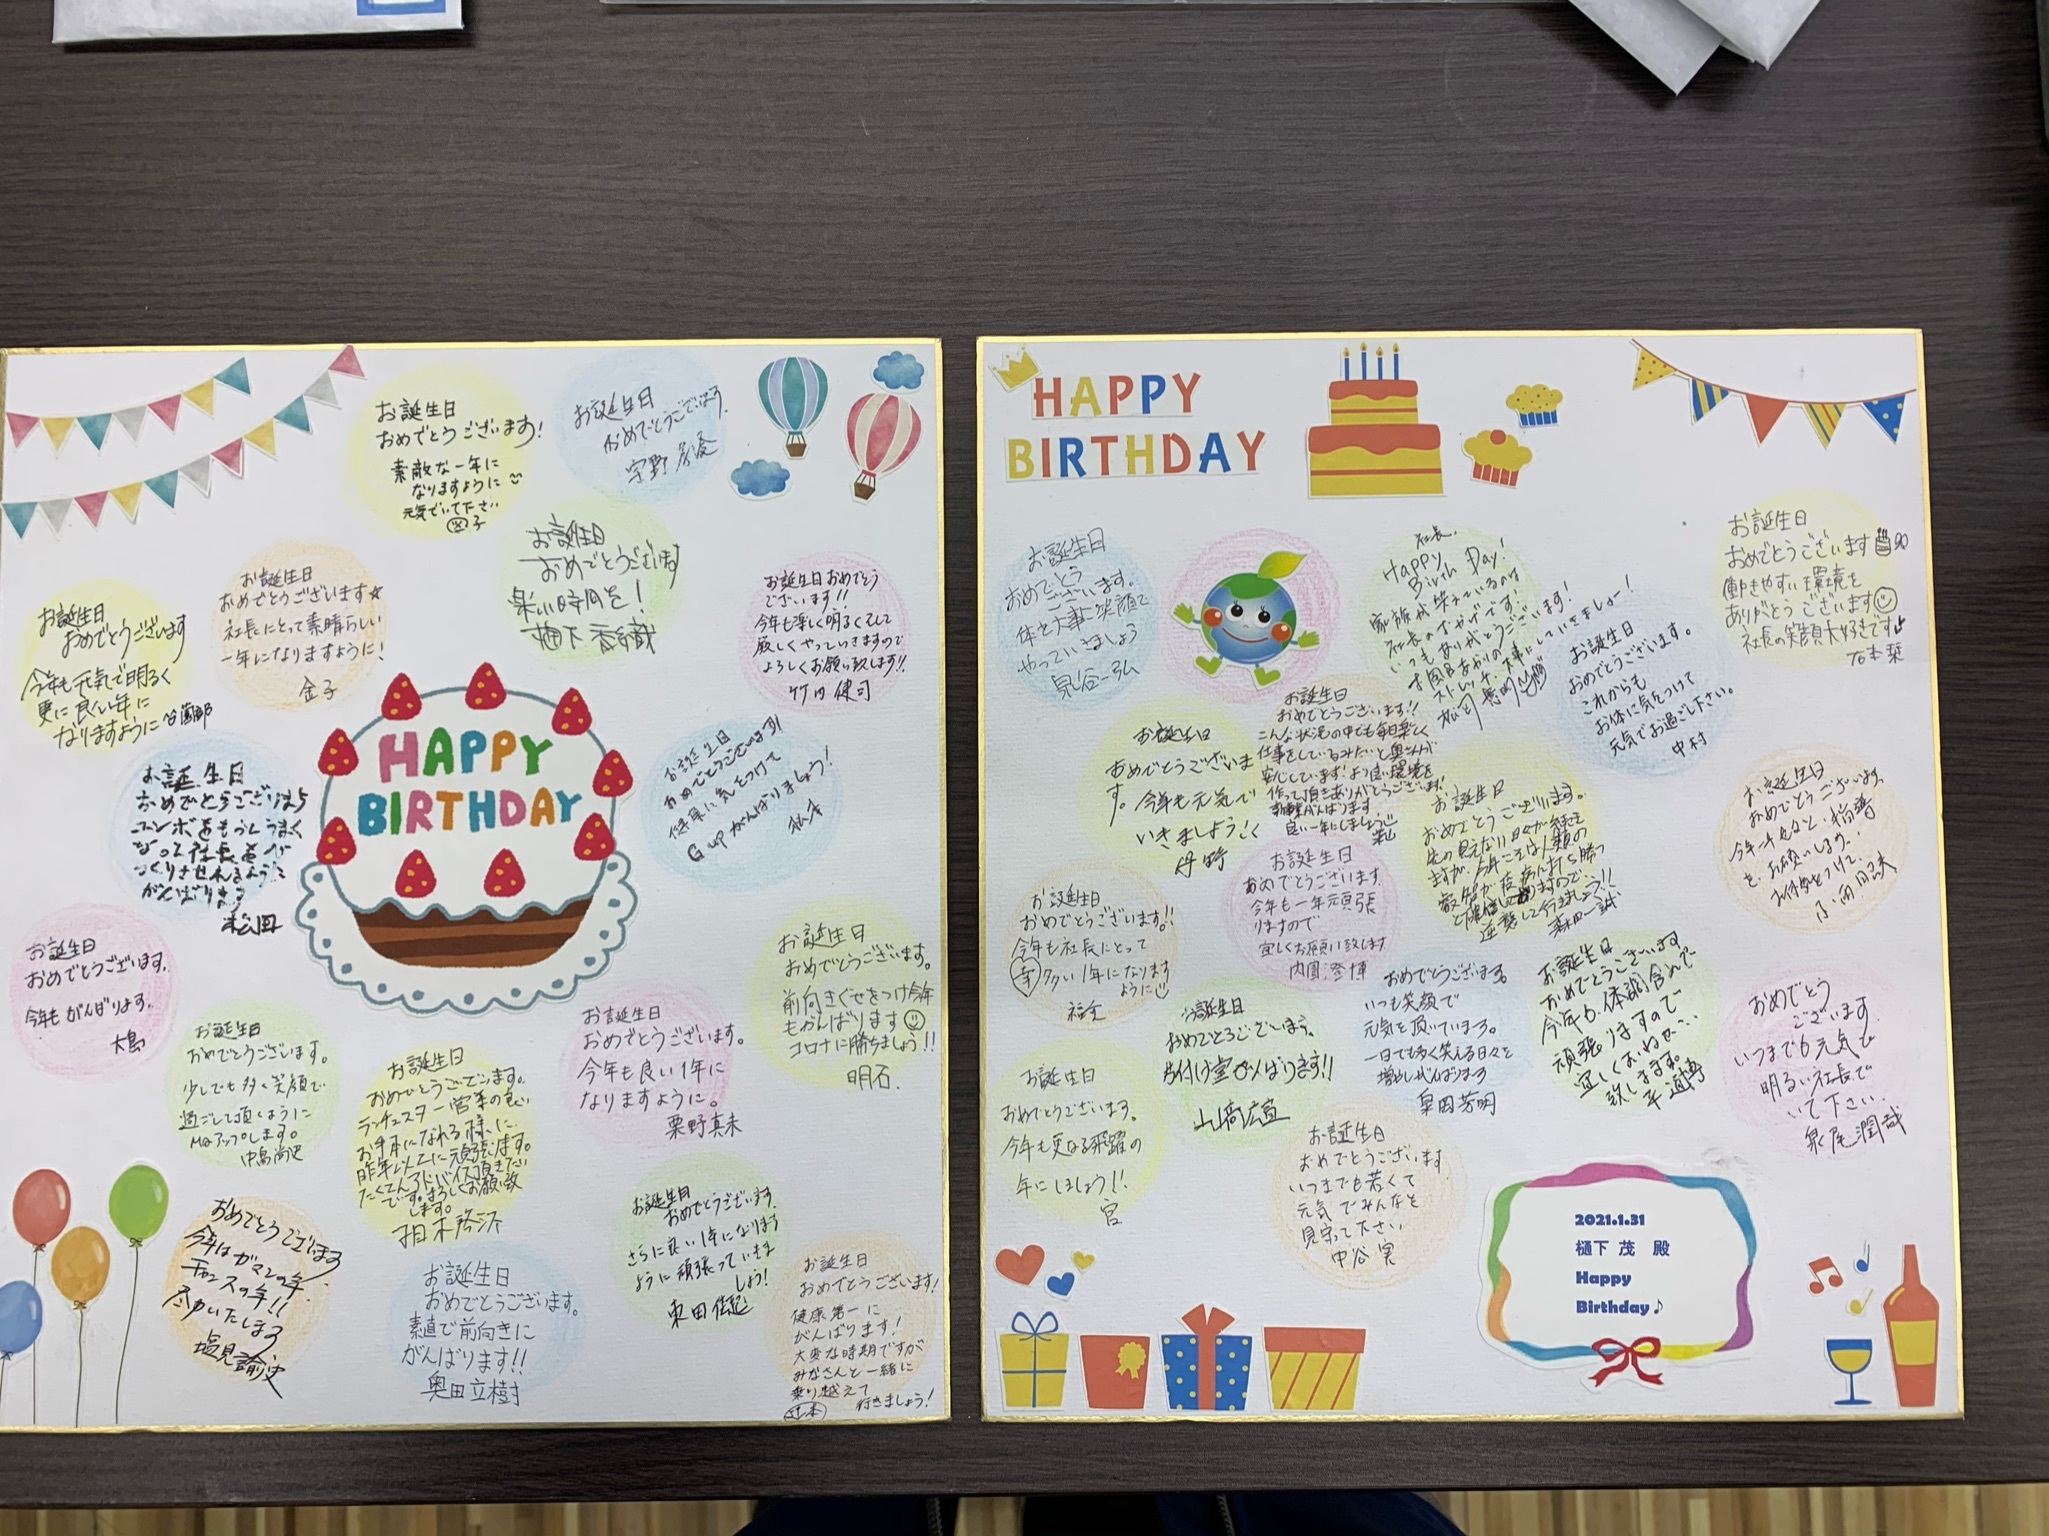 お誕生日
おめでとうございます!
素敵な一年に
なりますように
元気でいて下さい
お誕生日
おめでとうございます
お誕生日
おめでとうございます☆
社長にとって素晴らしい
一年になりますように!
金子
お誕生日
おめでとうございます
お誕生日おめでとう
ございます!!
今年も楽しく明るくそして
厳しくやっていきますので
よろしくお願い致します!!
竹内健司
お誕生日
おめでとうございます
今年も元気で明るく
更に良い年に
なりますように
HAPPY
BIRTHDAY
お誕生日
おめでとうございます
松田
お誕生日
おめでとうございます!
健康に気をつけて
がんばりましょう!
お誕生日
おめでとうございます。
今年もがんばります。
大島
お誕生日
おめでとうございます。
前向きぐせをつけ今年
もがんばります
コロナに勝ちましょう!!
明石.
お誕生日
おめでとうございます。
少しでも多く笑顔で
過ごして頂くように
MQアップします。
中島尚史
お誕生日
おめでとうございます。
ランチェスター営業の良い
お手本になれる様に
昨年以上に頑張ります。
お誕生日
おめでとうございます。
今年も良い1年に
なりますように。
栗野真未
おめでとうございます
今年はガマンの年.
チャンスの年!!
尽力いたします
塩見諭史
お誕生日
おめでとうございます。
素直で前向きに
がんばります!!
奥田立樹
お誕生日
おめでとうございます.
さらに良い1年になります
ように頑張っていきま
しょう!
お誕生日
おめでとうございます!
健康第一に
がんばります!
大変な時期ですが
みなさんと一緒に
乗り越えて
行きましょう!
辻本
HAPPY
BIRTHDAY
お誕生日
おめでとう
ございます。
体を大事に笑顔で
やっていきましょう
泉谷一弘
社長、
Happy
Birth Day!
家族が笑っているのは
社長のおかげです!
いつもありがとうございます!
お誕生日
おめでとうございます
働きやすい環境を
ありがとうございます
社長の笑顔大好きです
石本栞
お誕生日
おめでとうございます。
これからも
お体に気をつけて
元気でお過ごし下さい。
中村
お誕生日
おめでとうございます!!
こんな状況の中でも毎日楽しく
仕事をしているみたいと奥さんが
安心しています!より良い環境を
作って頂きありがとうございます!
良い一年にしましょう
お誕生日
おめでとうございま
す。今年も元気で
いきましょう
丹野
お誕生日
おめでとうございます。
先の見えない日々が続き
ますが、今年こそは人類の
森田一誠
お誕生日
おめでとうございます.
お誕生日
おめでとうございます!!
今年も社長にとって
幸多い1年になります
ように
お誕生日
おめでとうございます
今年も一年頑張
りますので
宜しくお願い致します
内園澄博
お誕生日
おめでとうございます。
片付け堂がんばります!!
山高広宣
おめでとうございます。
いつも笑顔で
元気を頂いています。
一日でも多く笑える日々を
増やしがんばります
奥田芳明
お誕生日
おめでとうございます
今年も体調含めて
頑張りますので
宜しくおねがい
致します。
おめでとう
ございます.
いつまでも元気で
明るい社長で
いて下さい.
泉尾潤哉
お誕生日
おめでとうございます。
今年も更なる飛躍の
年にしましょう!!
宮
お誕生日
おめでとうございます
いつまでも若くて
元気でみんなと
見守って下さい
中谷実
2021.1.31
樋下 茂 殿
Happy
Birthday♪